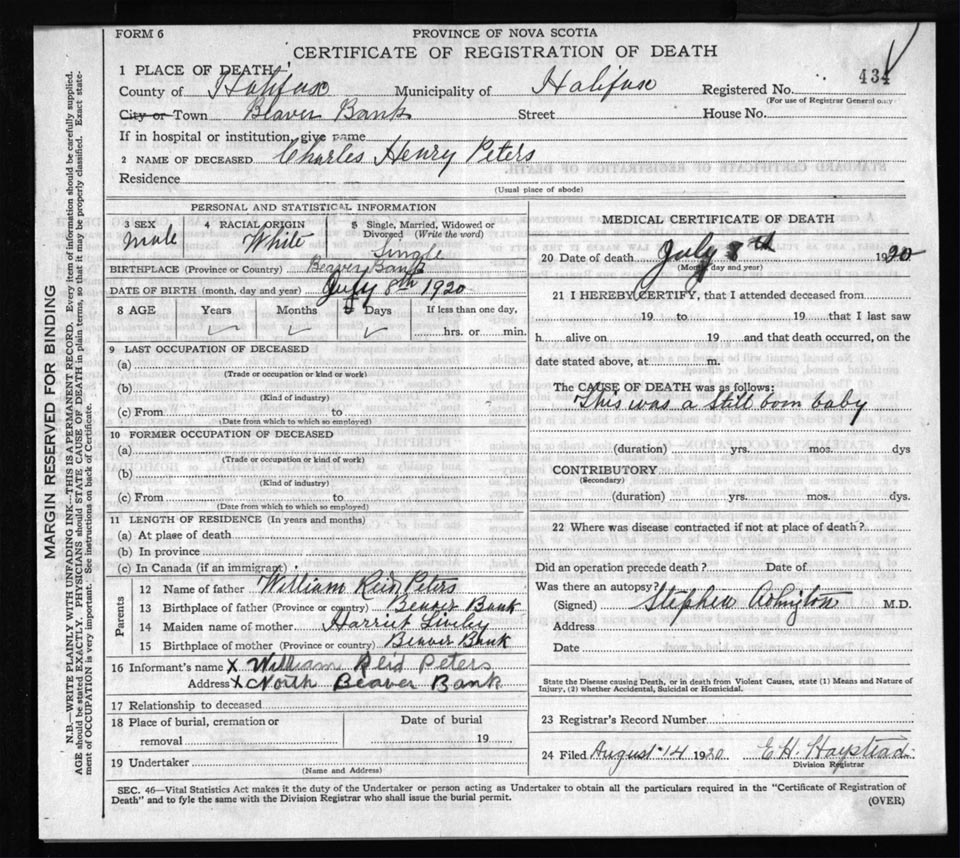 FORM 6
PROVINCE OF NOVA SCOTIA
CERTIFICATE OF REGISTRATION OF DEATH
434
1 PLACE OF DEATH
County of Halifax Municipality of Halifax Registered No.
(For use of Registrar General only)
City or Town Beaver Bank Street House No.
If in hospital or institution, give name
2 NAME OF DECEASED Charles Henry Peters
Residence
(Usual place of abode)
PERSONAL AND STATISTICAL INFORMATION
3 SEX 4 RACIAL ORIGIN 5 Single, Married, Widowed or Divorced (Write the word)
Male White Single
BIRTHPLACE (Province or Country) Beaver Bank
DATE OF BIRTH (month, day and year) July 8th 1920
8 AGE Years Months Days If less than one day,
hrs. or min.
9 LAST OCCUPATION OF DECEASED
(a)
(Trade or occupation or kind or work)
(b)
(Kind of industry)
(c) From to
(Date from which to which so employed)
10 FORMER OCCUPATION OF DECEASED
(a)
(Trade or occupation or kind of work)
(b)
(Kind of industry)
(c) From to
(Date from which to which so employed)
11 LENGTH OF RESIDENCE (In years and months)
(a) At place of death
(b) In province
(c) In Canada (if an immigrant)
Parents
12 Name of father William Reid Peters
13 Birthplace of father (Province or country) Beaver Bank
14 Maiden name of mother Harriet Lively
15 Birthplace of mother (Province or country) Beaver Bank
16 Informant's name X William Reid Peters
Address X North Beaver Bank
17 Relationship to deceased
18 Place of burial, cremation or removal Date of burial
19
19 Undertaker
(Name and Address)
MEDICAL CERTIFICATE OF DEATH
20 Date of death July 8th 1920
(Month, day and year)
21 I HEREBY CERTIFY, that I attended deceased from
19 to 19 that I last saw
h alive on 19 and that death occurred, on the
date stated above, at m.
The CAUSE OF DEATH was as follows:
This was a still born baby
(duration) yrs. mos. dys
CONTRIBUTORY
(Secondary)
(duration) yrs. mos. dys.
22 Where was disease contracted if not at place of death?
Did an operation precede death? Date of
Was there an autopsy?
(Signed) Stephen M.D.
Address
Date
State the Disease causing Death, or in death from Violent Causes, state (1) Means and Nature of
Injury, (2) whether Accidental, Suicidal or Homicidal.
23 Registrar's Record Number
24 Filed August 14 1920 E.H.
Division Registrar
SEC. 46—Vital Statistics Act makes it the duty of the Undertaker or person acting as Undertaker to obtain all the particulars required in the "Certificate of Registration of
Death" and to fyle the same with the Division Registrar who shall issue the burial permit.
(OVER)
MARGIN RESERVED FOR BINDING
N.B.—WRITE PLAINLY WITH UNFADING INK—THIS IS A PERMANENT RECORD. Every item of information should be carefully supplied.
AGE should be stated EXACTLY. PHYSICIANS should STATE CAUSE OF DEATH in plain terms, so that it may be properly classified. Exact state-
ment of OCCUPATION is very important. See instructions on back of Certificate.